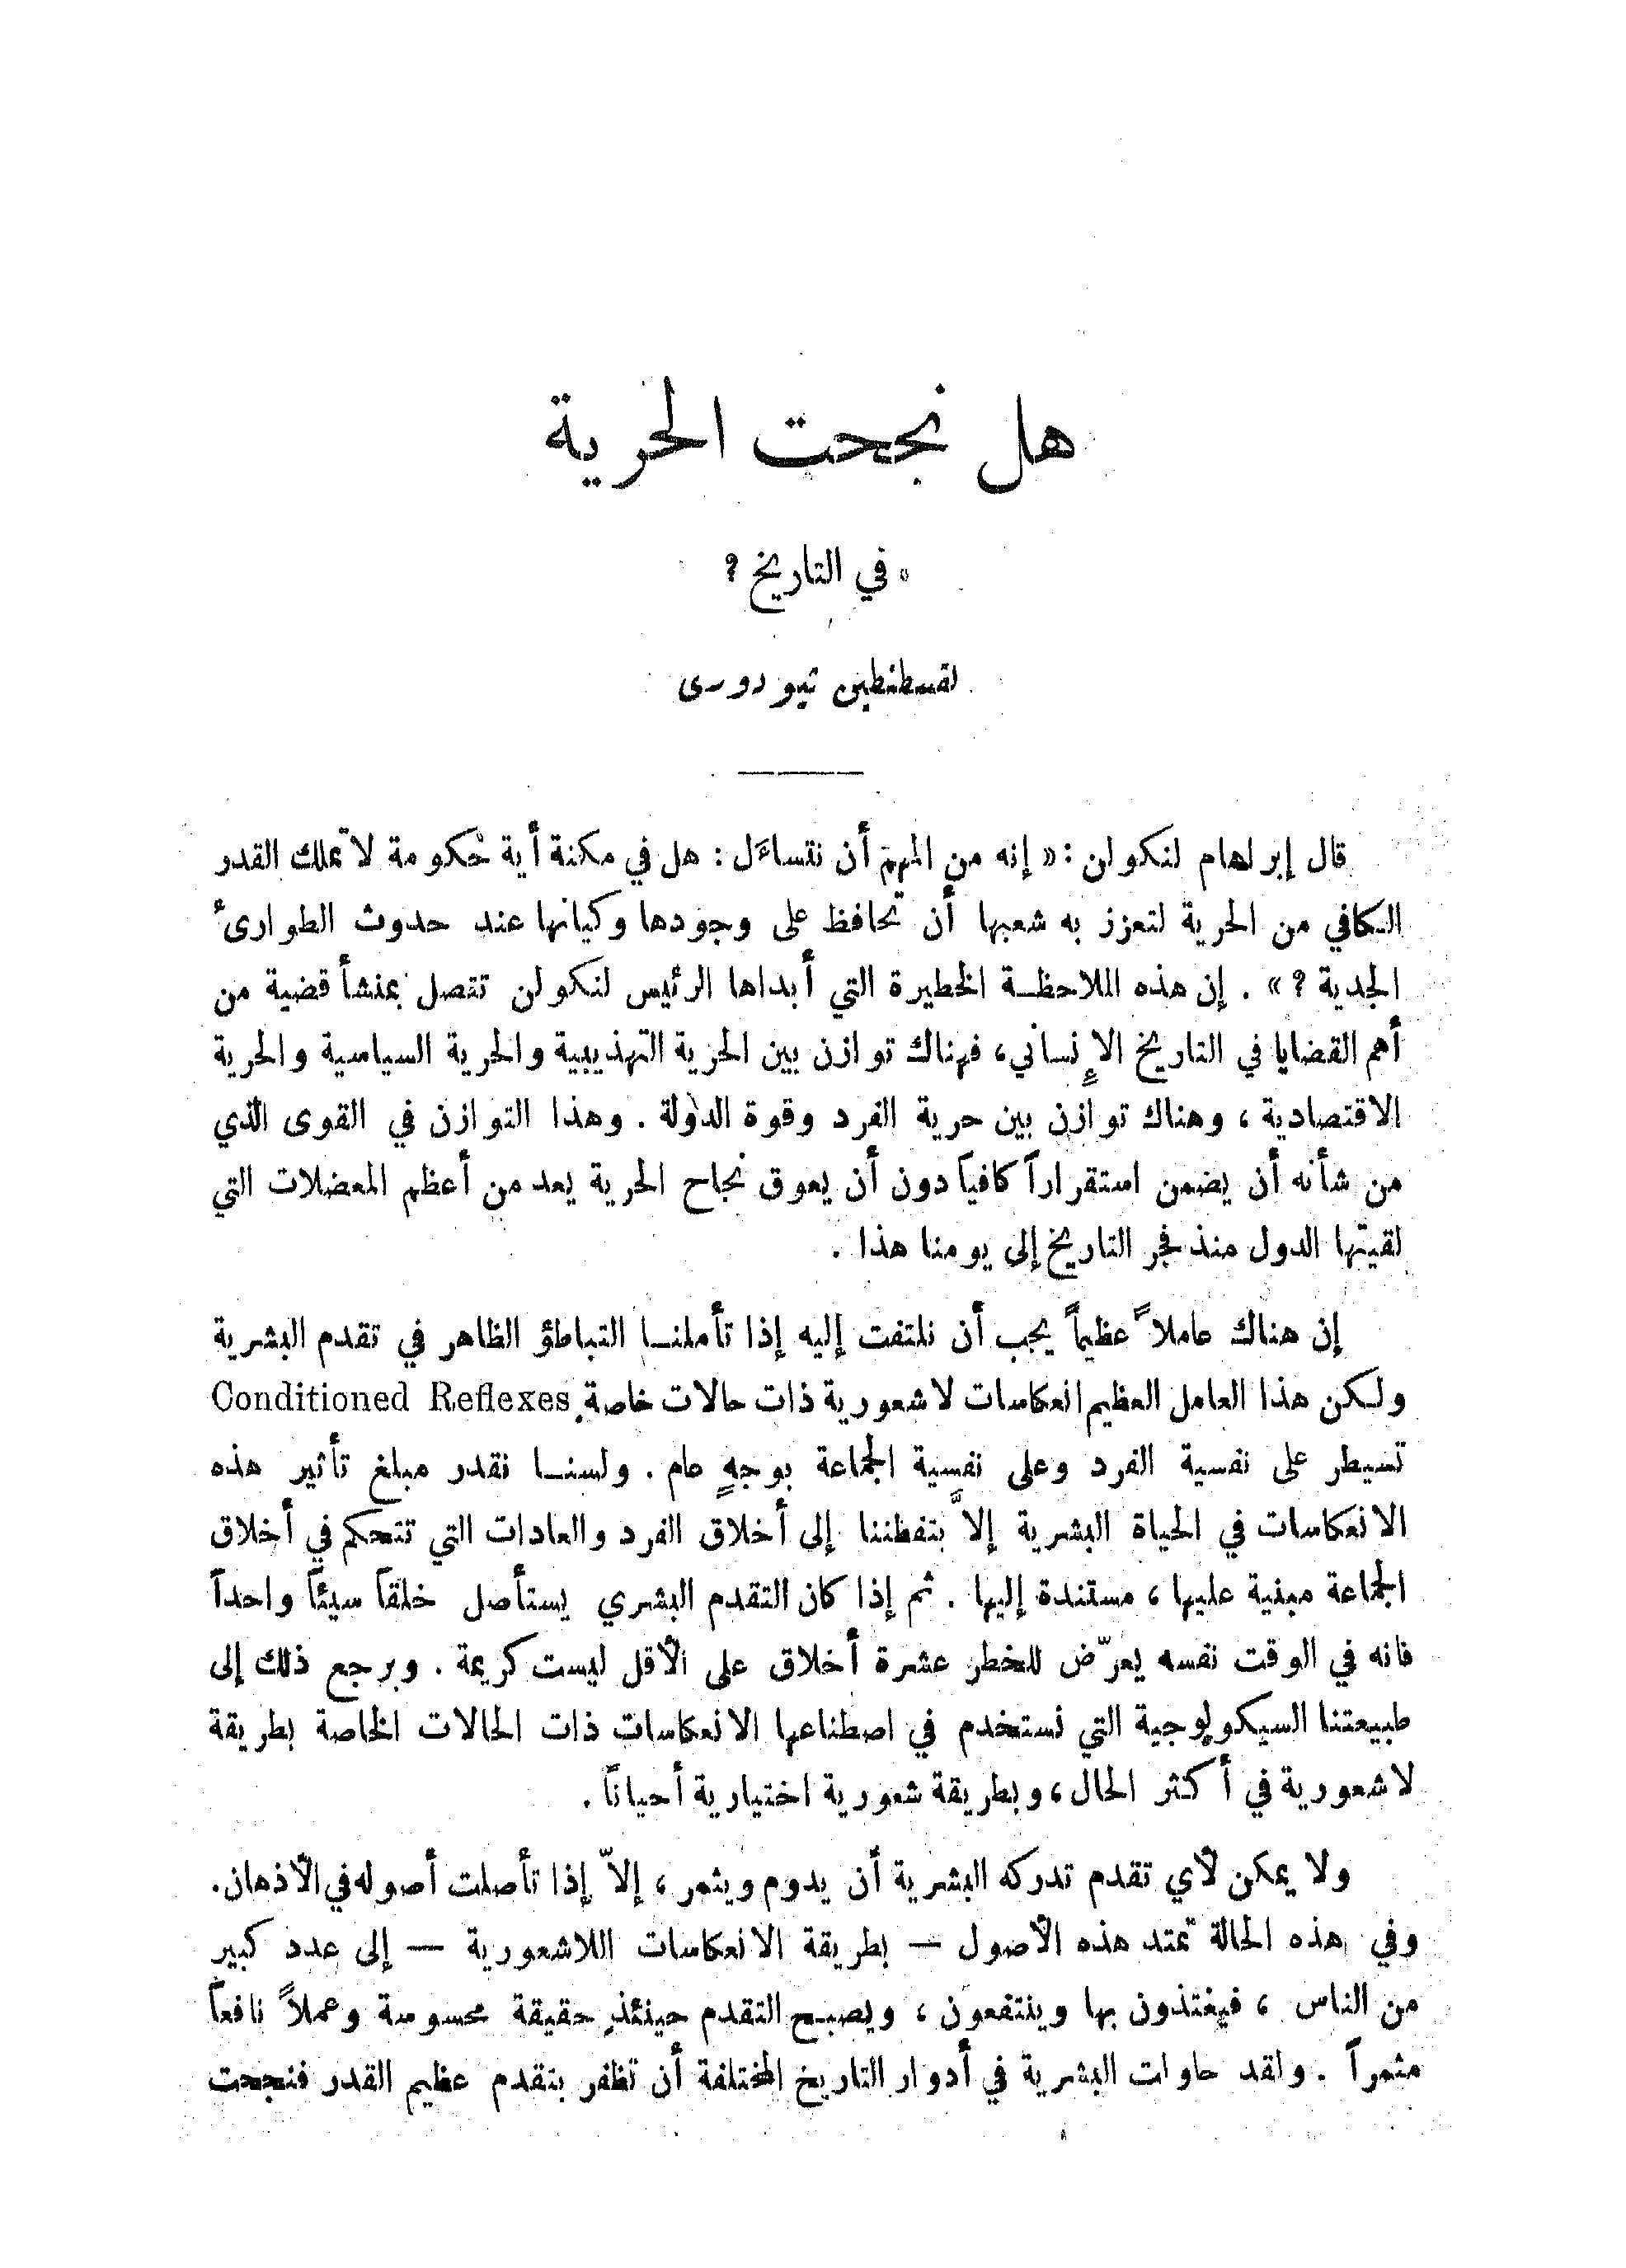 هل نجحت الحرية
في التاريخ ؟
لقسطنطين ثيودورى
قال إبراهام لنكولن : « إنه من المهم أن نتساءَل : هل في مكنة أية حكومة لا تملك القدر
الكافي من الحرية لتعزز به شعبها أن تحافظ على وجودها وكيانها عند حدوث الطوارىء
الجدية ؟ » . إن هذه الملاحظة الخطيرة التي أبداها الرئيس لنكولن تتصل بمنشأ قضية من
أهم القضايا في التاريخ الإنساني ، فهناك توازن بين الحرية التهذيبية والحرية السياسية والحرية
الاقتصادية ، وهناك توازن بين حرية الفرد وقوة الدولة . وهذا التوازن في القوى الذي
من شأنه أن يضمن استقراراً كافياً دون أن يعوق نجاح الحرية يعد من أعظم المعضلات التي
لقيتها الدول منذ فجر التاريخ إلى يومنا هذا .
إن هناك عاملاً عظيماً يجب أن نلتفت إليه إذا تأملنا التباطؤ الظاهر في تقدم البشرية
ولكن هذا العامل العظيم انعكاسات لاشعورية ذات حالات خاصة Conditioned Reflexes
تسيطر على نفسية الفرد وعلى نفسية الجماعة بوجهٍ عام . ولسنا نقدر مبلغ تأثير هذه
الانعكاسات في الحياة البشرية إلاَّ بتفطننا إلى أخلاق الفرد والعادات التي تتحكم في أخلاق
الجماعة مبنية عليها ، مستندة إليها . ثم إذا كان التقدم البشري يستأصل خلقاً سيئاً واحداً
فانه في الوقت نفسه يعرّض للخطر عشرة أخلاق على الأقل ليست كريمة . ويرجع ذلك إلى
طبيعتنا السيكولوجية التي نستخدم في اصطناعها الانعكاسات ذات الحالات الخاصة بطريقة
لاشعورية في أكثر الحال ، وبطريقة شعورية اختيارية أحياناً .
ولا يمكن لأي تقدم تدركه البشرية أن يدوم ويثمر ، إلاّ إذا تأصلت أصوله في الأذهان .
وفي هذه الحالة تمتد هذه الأصول — بطريقة الانعكاسات اللاشعورية — إلى عدد كبير
من الناس ، فيغتذون بها وينتفعون ، ويصبح التقدم حينئذٍ حقيقة محسوسة وعملاً نافعاً
مثمراً . ولقد حاولت البشرية في أدوار التاريخ المختلفة أن تظفر بتقدم عظيم القدر فنجحت